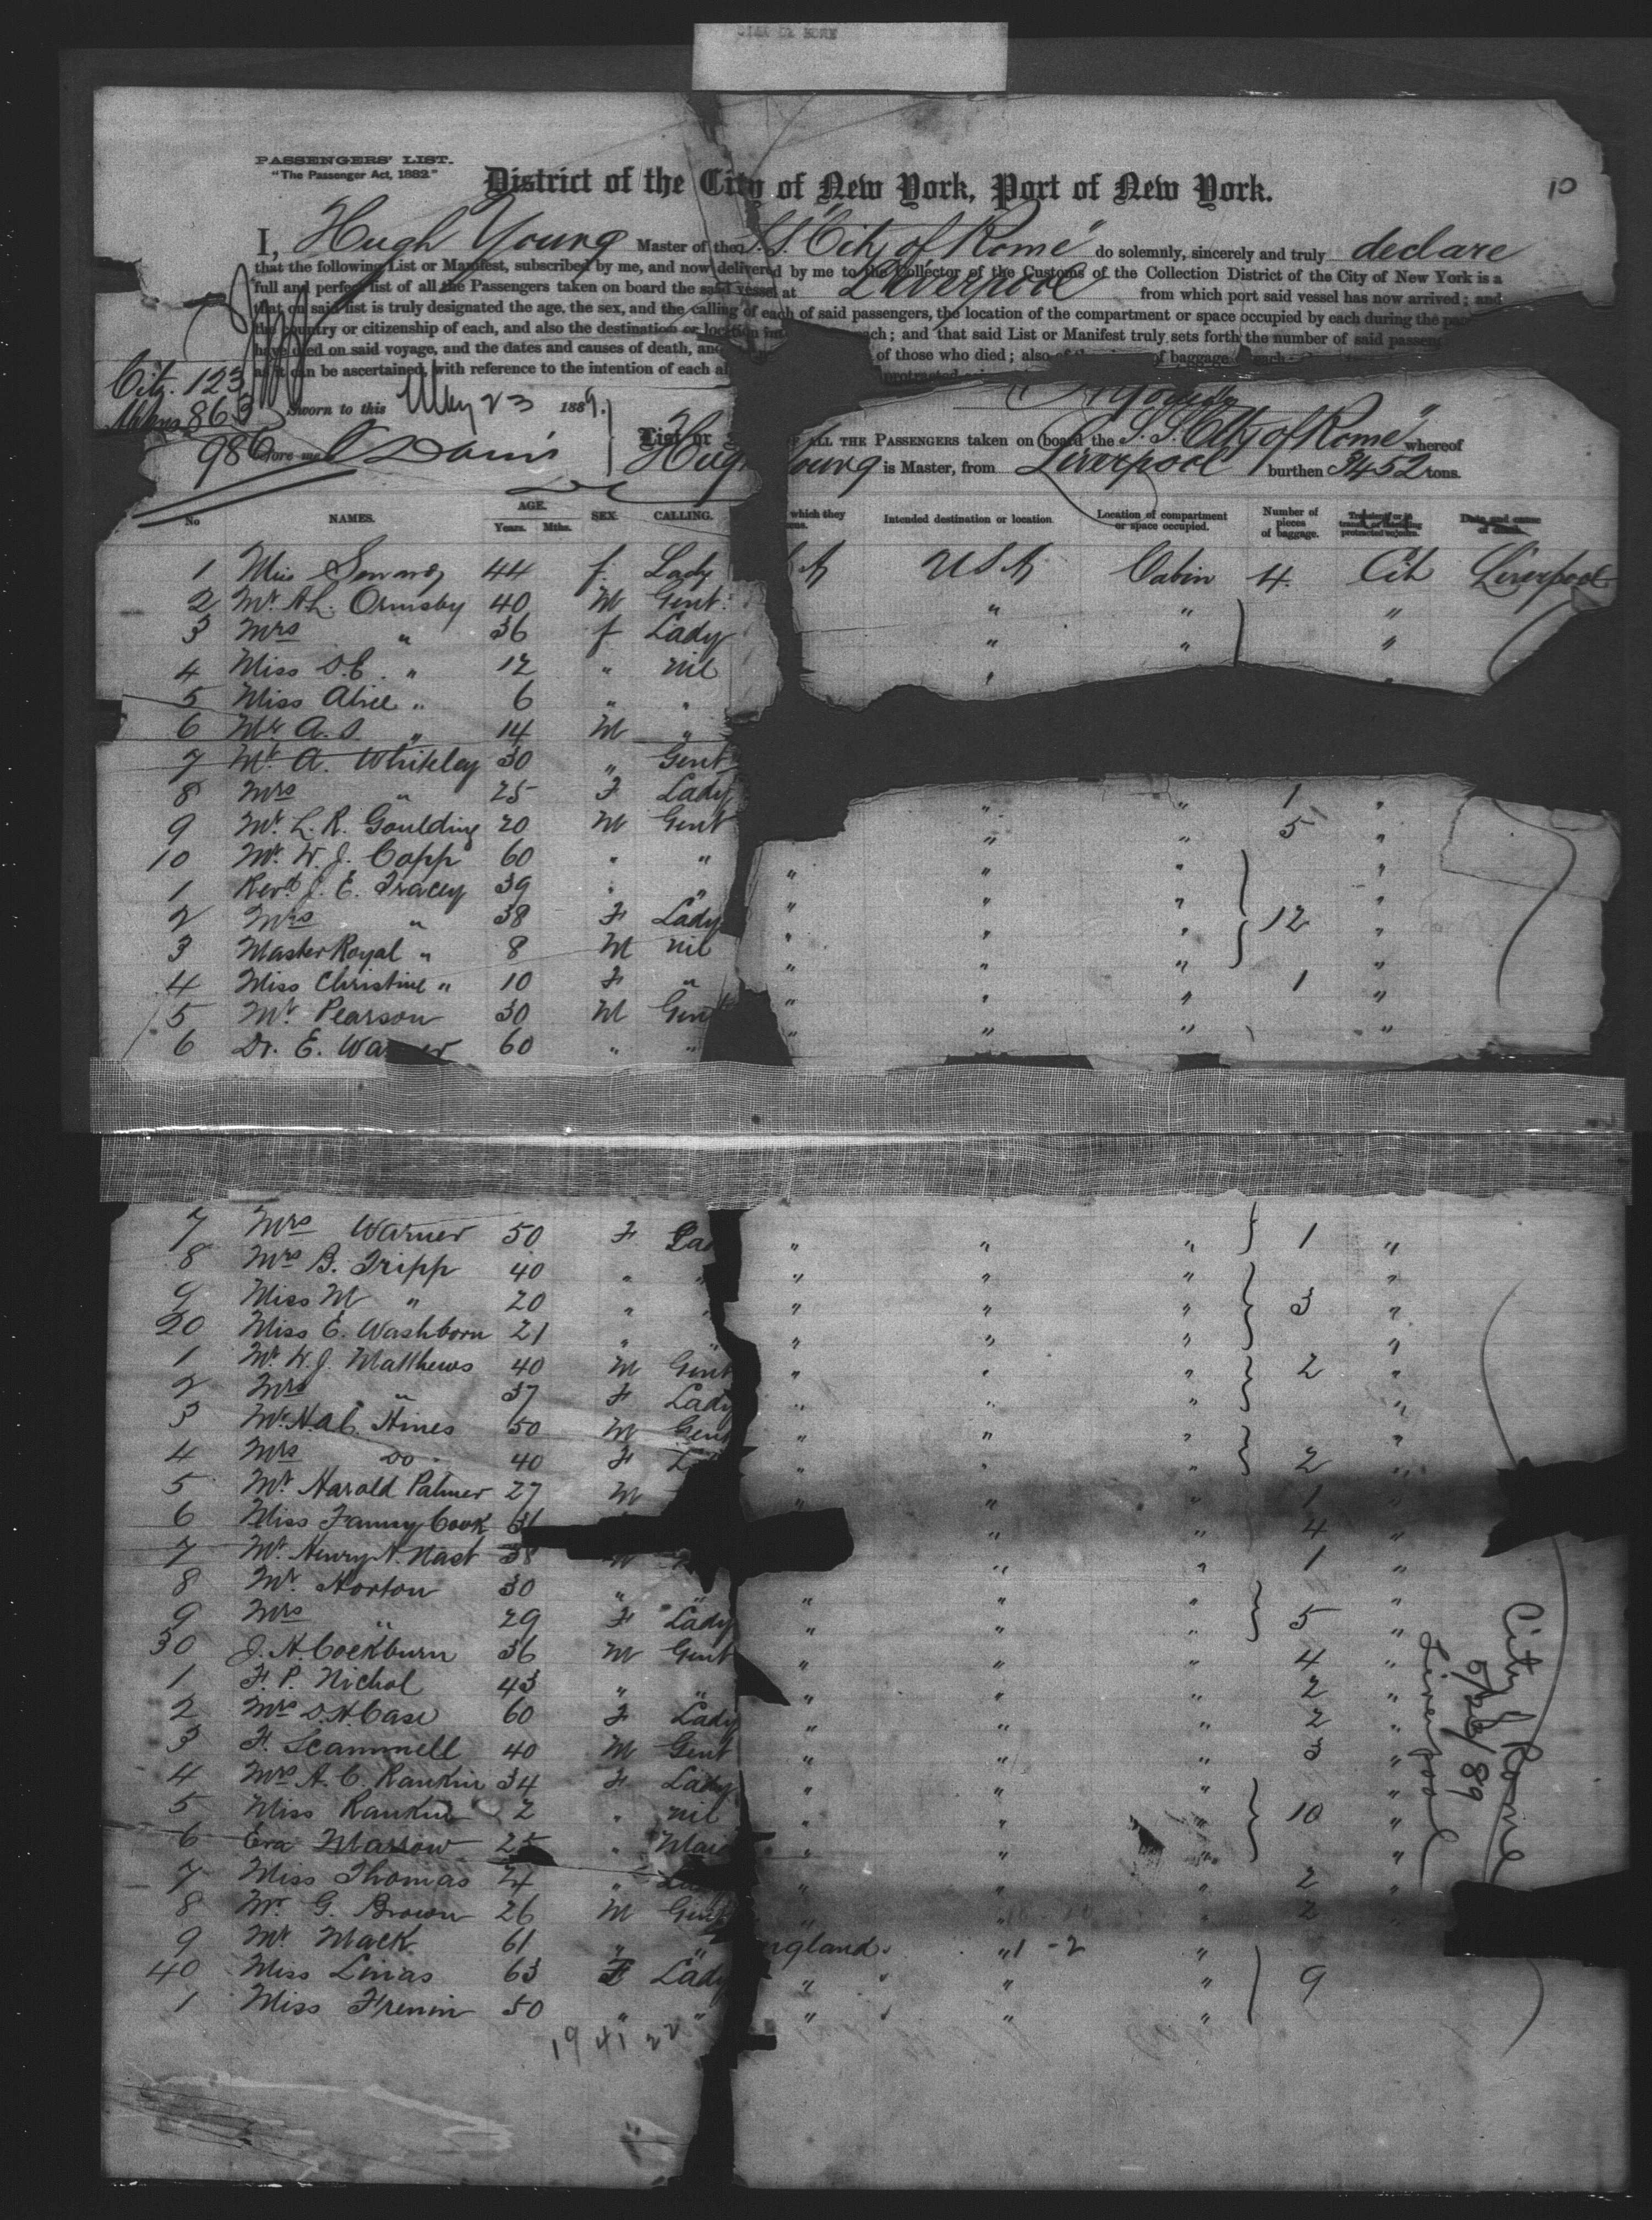 CITY OF ROME
PASSENGERS' LIST.
"The Passenger Act, 1882."
District of the City of New York, Port of New York.
10
I, Hugh Young Master of the S.S. "City of Rome" do solemnly, sincerely and truly declare
that the following List or Manifest, subscribed by me, and now delivered by me to the Collector of the Customs of the Collection District of the City of New York is a
full and perfect list of all the Passengers taken on board the said vessel at Liverpool from which port said vessel has now arrived; and
that on said list is truly designated the age, the sex, and the calling of each of said passengers, the location of the compartment or space occupied by each during the
the country or citizenship of each, and also the destination or location each; and that said List or Manifest truly sets forth the number of said
have died on said voyage, and the dates and causes of death, and of those who died; also of baggage each
as can be ascertained, with reference to the intention of each protracted
Citz. 123
Aliens 863
986
Sworn to this May 23 1889.
before me
List or ALL THE PASSENGERS taken on board the S.S. "City of Rome" whereof
Hugh Young is Master, from Liverpool burthen 3452 tons.
No NAMES. AGE. Years. Mths. SEX. CALLING. which they Intended destination or location. Location of compartment or space occupied. Number of pieces of baggage. Date and cause
1 Miss 44 f Lady USA Cabin 4 Cit Liverpool
2 Mr. A.L. Ormsby 40 M Gent. " " "
3 Mrs " 36 f Lady " " "
4 Miss D.E. " 12 " nil "
5 Miss Alice " 6 " "
6 Mr. A.S. " 14 M "
7 Mr. A. Whiteley 30 " Gent
8 Mrs " 25 F Lady " " 1 "
9 Mr. L.R. Goulding 20 M Gent " " 5 "
10 Mr. W.J. Copp 60 " " " " " "
1 Revd. J.E. Tracey 39 " " " " " "
2 Mrs " 38 F Lady " " " 12 "
3 Master Royal " 8 M nil " " " "
4 Miss Christine " 10 F " " " " 1 "
5 Mr. Pearson 30 M Gent " " " "
6 Dr. E. Warner 60 " "
7 Mrs Warner 50 F Lad " " " 1 "
8 Mrs B. Tripp 40 " " " " " "
9 Miss M " 20 " " " " " 3 "
20 Miss E. Washborn 21 " " " " "
1 Mr. W.J. Matthews 40 M Gent " " " 2 "
2 Mrs " 37 F Lady " " "
3 Mr. Hines 50 M Gent " " " "
4 Mrs Do 40 F L " " " 2 "
5 Mr. Harold Palmer 27 M " " " 1 "
6 Miss Fanny Cook 31 " " 4 "
7 Mr. Henry A. Nast 38 M " " 1 "
8 Mr. Norton 30 " " " " " "
9 Mrs " 29 F Lady " " " 5 "
30 J.H. Cockburn 36 M Gent " " " 4 "
1 F.P. Nichol 43 " " " " " 2 "
2 Mrs D.H. Case 60 F Lady " " " 2 "
3 F. Scammell 40 M Gent " " " 3 "
4 Mrs A.C. Rankin 34 F Lady " " " "
5 Miss Rankin 2 " nil " " " 10 "
6 Eva Marsow 25 " Mai " " " "
7 Miss Thomas 24 " La " " " 2 "
8 Mr. G. Brown 26 M Gent " " " 2 "
9 Mr. Mack 61 " " ngland " "
40 Miss 63 F Lady " " " 9
1 Miss 50 " " " " "
19 41 22
City of Rome
5/23/89
Liverpool